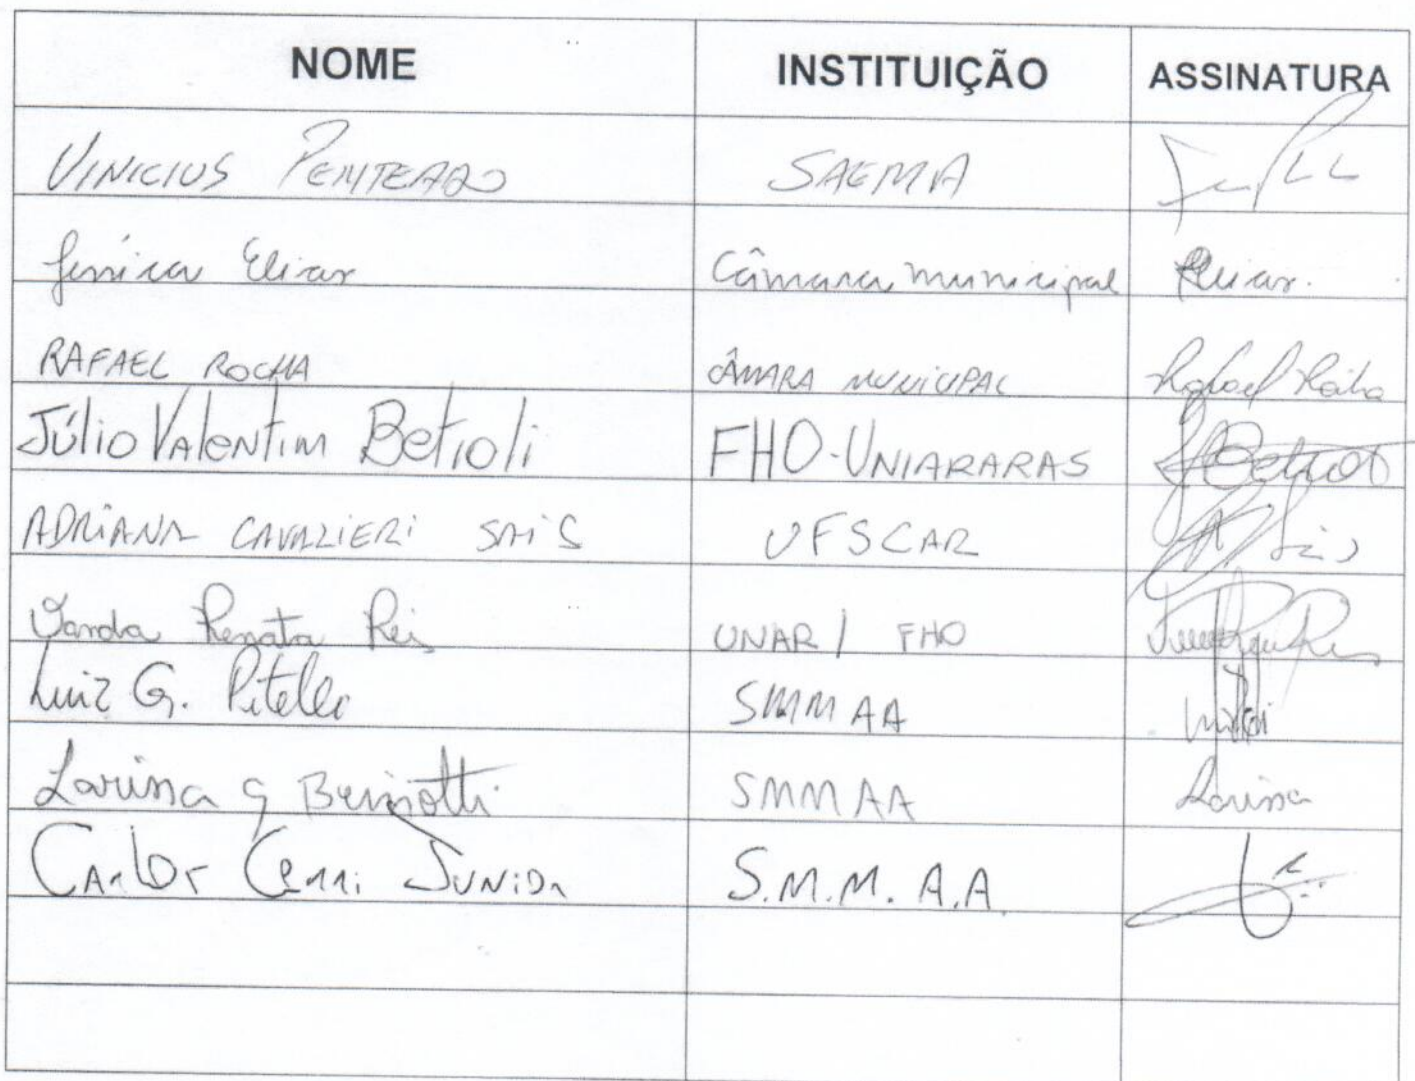 NOME INSTITUIÇÃO ASSINATURA
VINICIUS PENTEADO SAEMA
Elias Câmara municipal Elias.
RAFAEL ROCHA CÂMARA MUNICIPAL Rafael Rocha
Júlio Valentim Betioli FHO-UNIARARAS Betioli
ADRIANA CAVALIERI SAIS UFSCAR A. Sais
Vanda Renata Reis UNAR / FHO
Luiz G. Pitelli SMMAA
Larissa G Bernotti SMMAA Larissa
Carlos Cerri Junior S.M.M.A.A.